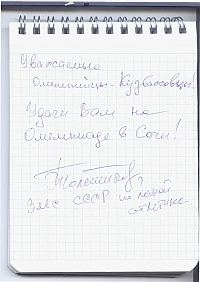 Уважаемые
Олимпийцы-Кузбассовцы!
Удачи Вам на
Олимпиаде в Сочи!
ЗМС СССР по легкой
атлетике